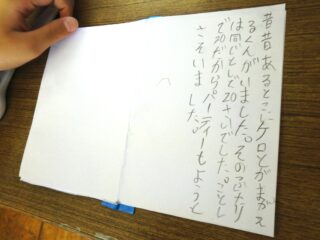 昔昔あるとこにケロとがまがえ
るくんがいました。そのふたり
は同じとしで20さいでした。ことし
で20だからパーティーもようと
さそいました。